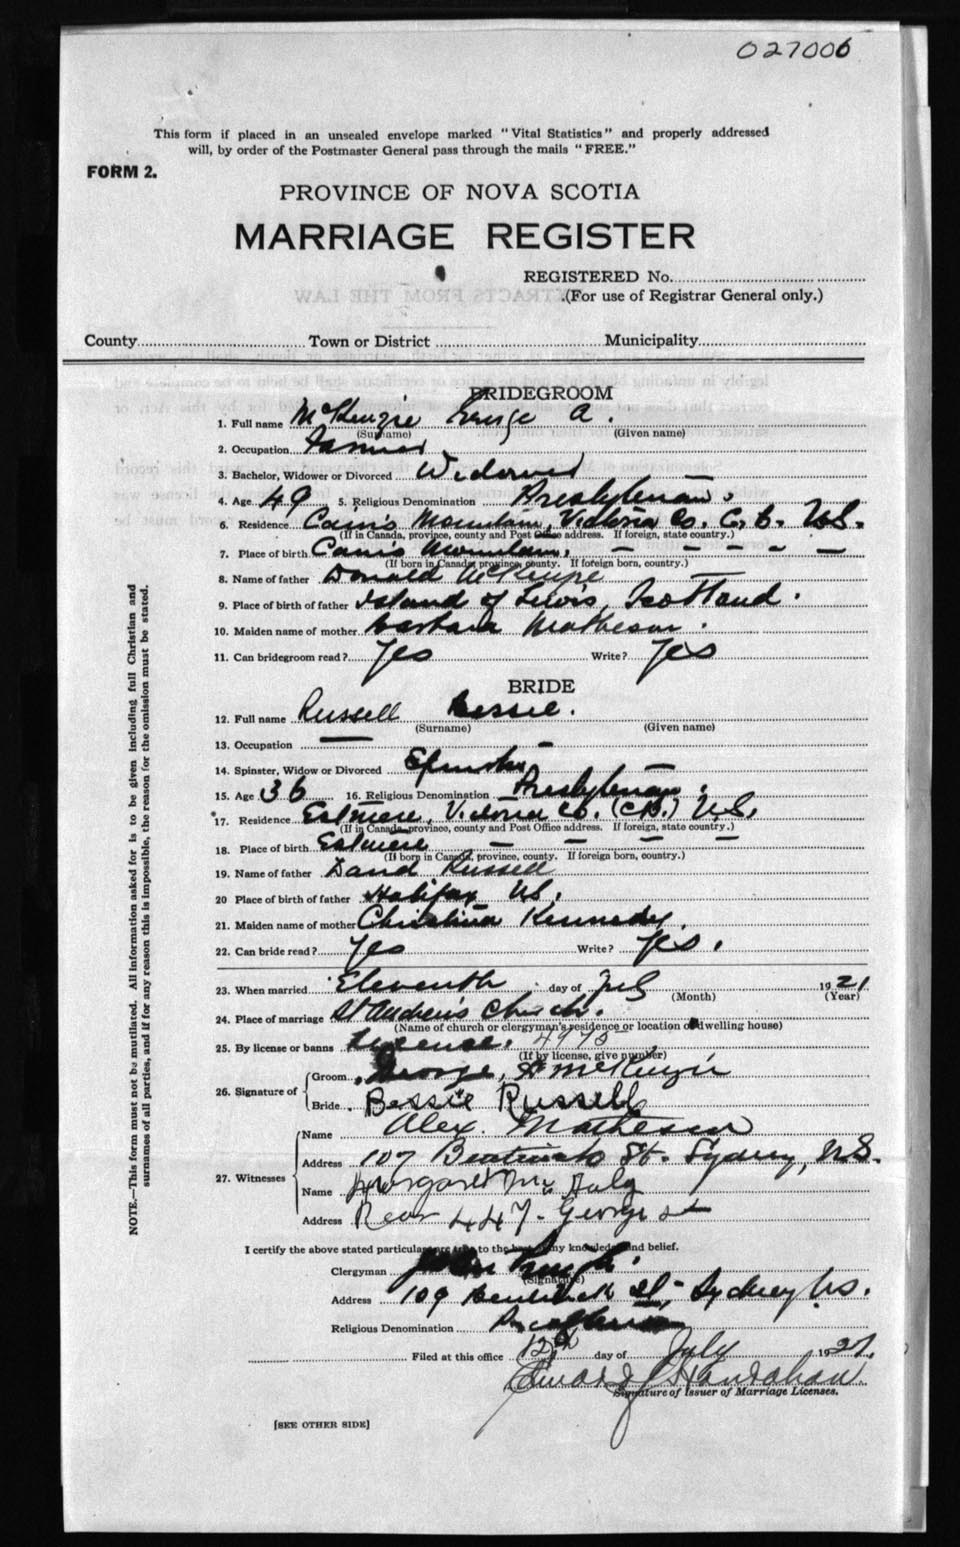 027006
This form if placed in an unsealed envelope marked "Vital Statistics" and properly addressed
will, by order of the Postmaster General pass through the mails "FREE."
FORM 2.
PROVINCE OF NOVA SCOTIA
MARRIAGE REGISTER
REGISTERED No.
(For use of Registrar General only.)
County Town or District Municipality
BRIDEGROOM
1. Full name McKenzie George A.
(Surname) (Given name)
2. Occupation Farmer
3. Bachelor, Widower or Divorced Widower
4. Age 49 5. Religious Denomination Presbyterian.
6. Residence Cain's Mountain, Victoria Co. C.B. N.S.
(If in Canada, province, county and Post Office address. If foreign, state country.)
7. Place of birth Cain's Mountain. — — — — —
(If born in Canada, province, county. If foreign born, country.)
8. Name of father Donald McKenzie
9. Place of birth of father Island of Lewis, Scotland.
10. Maiden name of mother Barbara Matheson.
11. Can bridegroom read? Yes Write? Yes
BRIDE
12. Full name Russell Bessie.
(Surname) (Given name)
13. Occupation —
14. Spinster, Widow or Divorced Spinster
15. Age 36 16. Religious Denomination Presbyterian.
17. Residence Estmere, Victoria Co. (C.B.) N.S.
(If in Canada, province, county and Post Office address. If foreign, state country.)
18. Place of birth Estmere — — — —
(If born in Canada, province, county. If foreign born, country.)
19. Name of father David Russell
20 Place of birth of father Halifax N.S.
21. Maiden name of mother Christina Kennedy.
22. Can bride read? Yes Write? Yes.
23. When married Eleventh day of July 1921
(Month) (Year)
24. Place of marriage St Andrew's Church.
(Name of church or clergyman's residence or location of dwelling house)
25. By license or banns License. 4975
(If by license, give number)
26. Signature of
Groom George A McKenzie
Bride Bessie Russell
27. Witnesses
Name Alex. Matheson
Address 107 Bentinck St. Sydney, N.S.
Name Margaret Mc
Address Rear 447 George St
I certify the above stated particulars are true to the best of my knowledge and belief.
Clergyman John Pringle.
(Signature)
Address 109 Bentinck St, Sydney N.S.
Religious Denomination Presbyterian
Filed at this office 12th day of July 1921.
Edward J Hanrahan
Signature of Issuer of Marriage Licenses.
[SEE OTHER SIDE]
NOTE.—This form must not be mutilated. All information asked for is to be given including full Christian and
surnames of all parties, and if for any reason this is impossible, the reason for the omission must be stated.